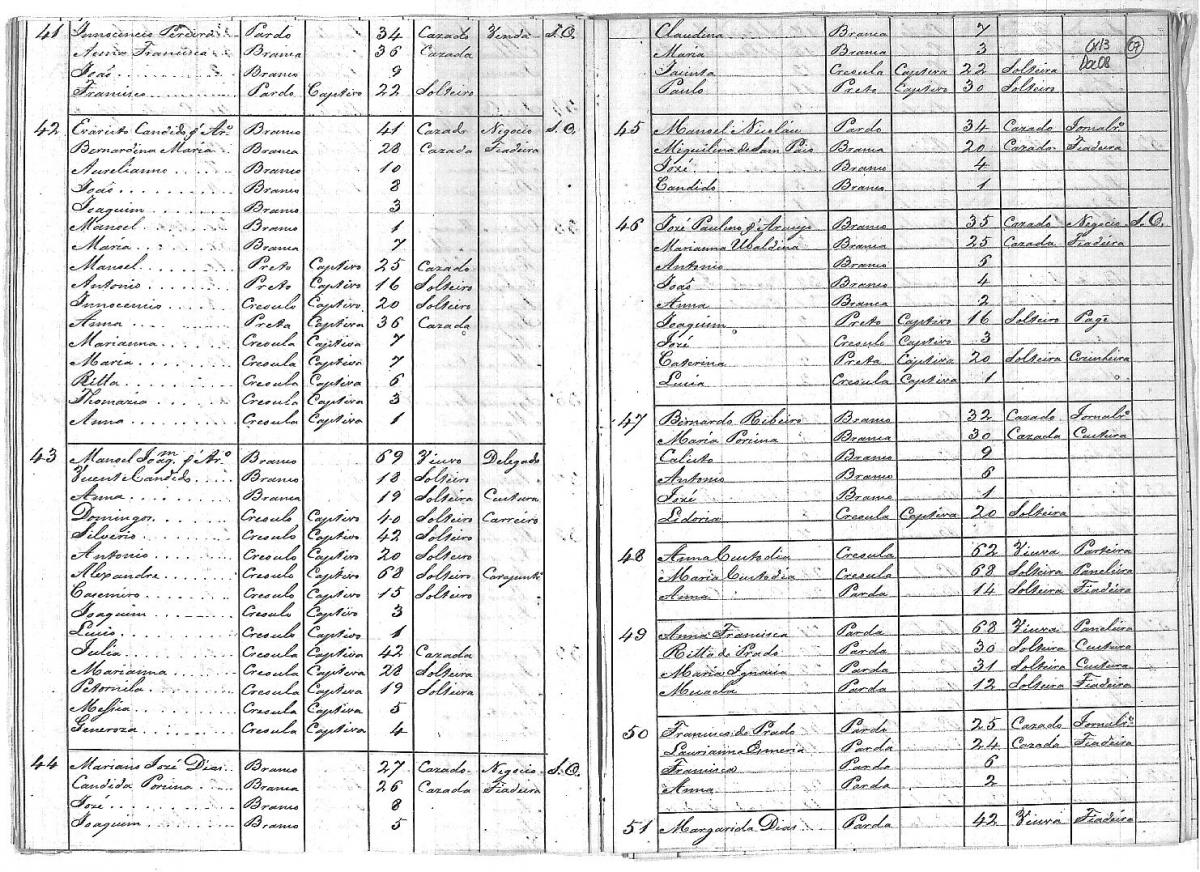 41 Innocencio Pereira Pardo 34 Cazado Venda S.O.
Anna Francisca Branca 36 Cazada
João Branco 9
Francisco Pardo Captivo 22 Solteiro
42 Evaristo Candido d' Arº Branco 41 Cazado Negocio S.O.
Bernardina Maria Branca 28 Cazada Fiadeira
Aurelianno Branco 10
João Branco 8
Joaquim Branco 3
Manoel Branco 1
Maria Branca 7
Manoel Preto Captivo 25 Cazado
Antonio Preto Captivo 16 Solteiro
Innocencio Creoulo Captivo 20 Solteiro
Anna Preta Captiva 36 Cazada
Marianna Creoula Captiva 7
Maria Creoula Captiva 7
Ritta Creoula Captiva 6
Thomazia Creoula Captiva 3
Anna Creoula Captiva 1
43 Manoel Joaqm d' Arº Branco 69 Viuvo Delegado
Vicente Candido Branco 18 Solteiro
Anna Branca 19 Solteira Custura
Domingos Creoulo Captivo 40 Solteiro Carreiro
Silverio Creoulo Captivo 42 Solteiro
Antonio Creoulo Captivo 20 Solteiro
Alexandre Creoulo Captivo 68 Solteiro
Casemiro Creoulo Captivo 15 Solteiro
Joaquim Creoulo Captivo 3
Lucio Creoulo Captivo 1
Julia Creoula Captiva 42 Cazada
Marianna Creoula Captiva 28 Solteira
Petornila Creoula Captiva 19 Solteira
Messia Creoula Captiva 5
Generoza Creoula Captiva 4
44 Mariano José Dias Branco 27 Cazado Negocio S.O.
Candida Porcina Branca 26 Cazada Fiadeira
José Branco 8
Joaquim Branco 5
Claudina Branca 7
Maria Branca 3
Jacinta Creoula Captiva 22 Solteira
Paulo Preto Captivo 30 Solteiro
07
45 Manoel Nicoláu Pardo 34 Cazado Jornalrº
Miguilina de Sam Paio Branca 20 Cazada Fiadeira
José Branco 4
Candido Branco 1
46 José Paulino d' Araujo Branco 35 Cazado Negocio S.O.
Marianna Ubaldina Branca 25 Cazada Fiadeira
Antonio Branco 5
João Branco 4
Anna Branca 2
Joaquim Preto Captivo 16 Solteiro Page
José Creoulo Captivo 3
Caterina Preta Captiva 20 Solteira Cozinheira
Lucia Creoula Captiva 1
47 Bernardo Ribeiro Branco 32 Cazado Jornalrº
Maria Porcina Branca 30 Cazada Custura
Calisto Branco 9
Antonio Branco 6
José Branco 1
Lidoria Creoula Captiva 20 Solteira
48 Anna Custodia Creoula 62 Viuva Parteira
Maria Custodia Creoula 68 Solteira Paneleira
Anna Parda 14 Solteira Fiadeira
49 Anna Francisca Parda 68 Viuva Paneleira
Ritta do Prado Parda 30 Solteira Custura
Maria Ignacia Parda 31 Solteira Custura
Parda 12 Solteira Fiadeira
50 Francisco do Prado Pardo 25 Cazado Jornalrº
Laurianna Esmeria Parda 24 Cazada Fiadeira
Francisca Parda 6
Anna Parda 2
51 Margarida Dias Parda 42 Viuva Fiadeira